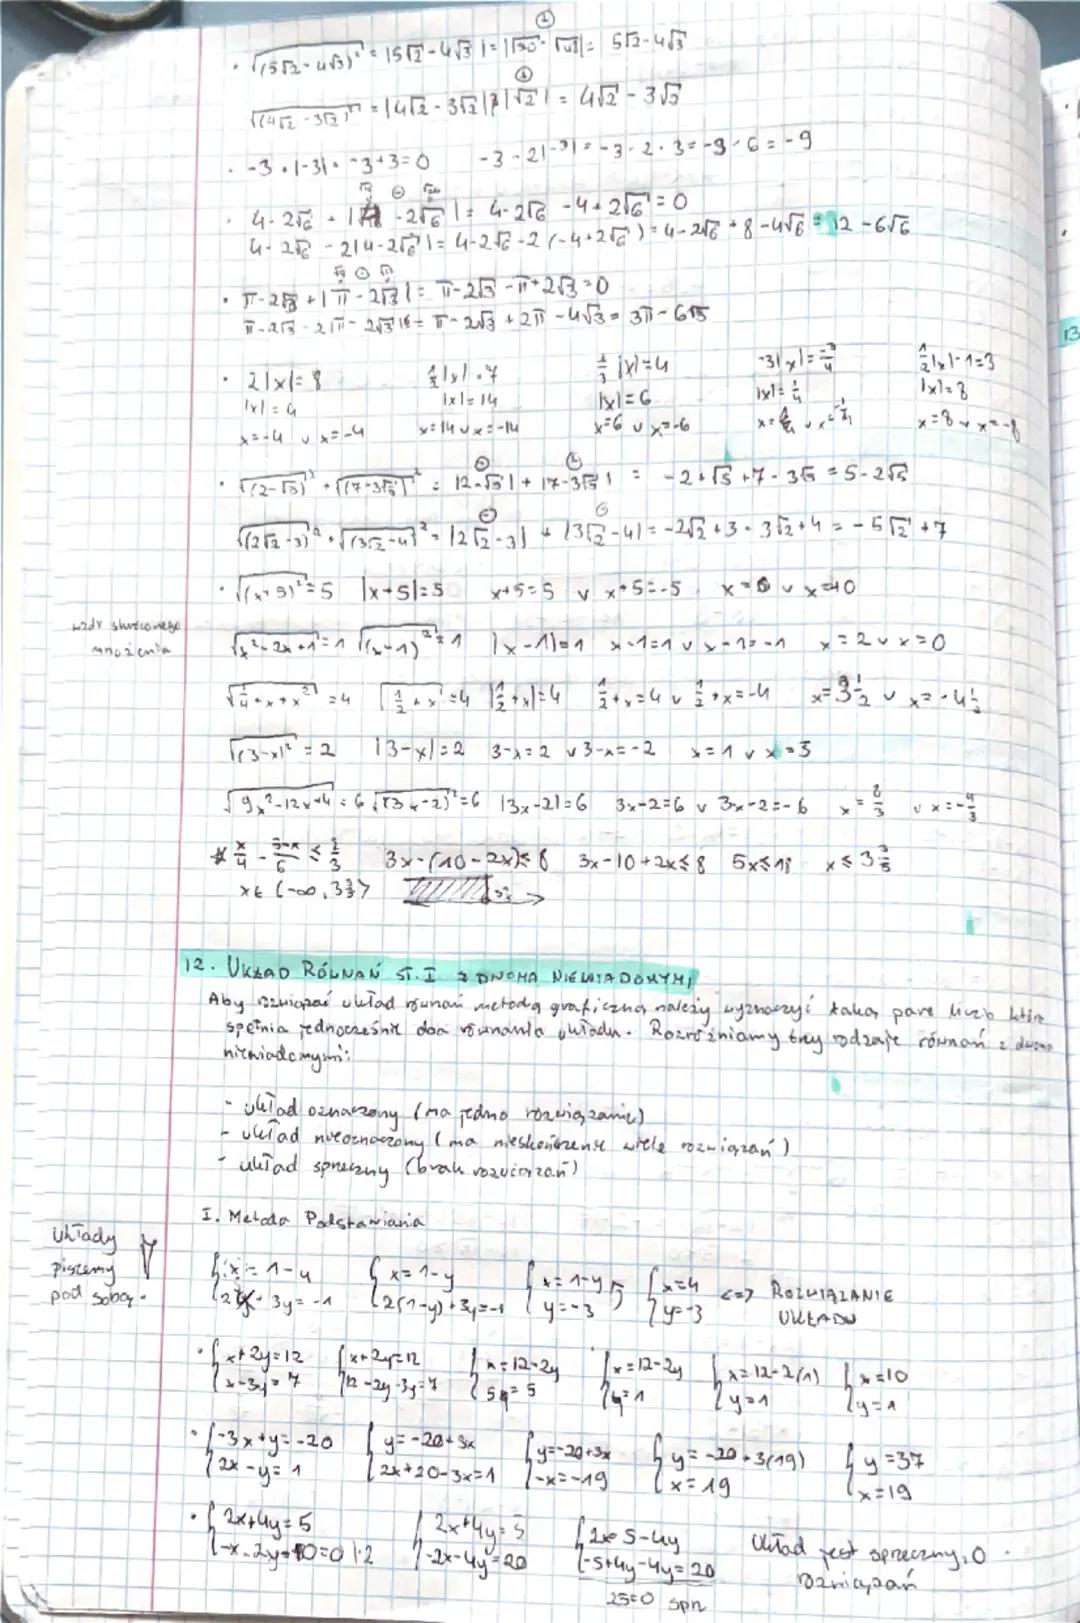 · √(5√2-4√3)² = |5√2-4√3| = |√50-√48| = 5√2-4√3
√(4√2-3√2)² = |4√2-3√2| |√2| = 4√2-3√3
· -3+|-3| = -3+3=0 -3-2|-3| = -3-2·3=-3-6=-9
· 4-2√6 + |4-2√6| = 4-2√6-4+2√6=0
4-2√6-2|4-2√6| = 4-2√6-2(-4+2√6)=4-2√6+8-4√6=12-6√6
· π-2√3+|π-2√3| = π-2√3-π+2√3=0
π-2√3-2|π-2√3| = π-2√3+2π-4√3=3π-6√3
· 2|x|=8 ½|x|=7 ⅔|x|=4 -3|x|=-¾ ½|x|-1=3
|x|=4 |x|=14 |x|=6 |x|=¼ |x|=8
x=-4 ∪ x=-4 x=14 ∪ x=-14 x=6 ∪ x=-6 x=¼ ∪ x=-¼ x=8 ∨ x=-8
· √(2-√5)² + √(7-3√5)² = |2-√5| + |7-3√5| = -2+√5+7-3√5=5-2√5
√(2√2-3)² + √(3√2-4)² = |2√2-3| + |3√2-4| = -2√2+3-3√2+4=-5√2+7
· √(x+5)²=5 |x+5|=5 x+5=5 ∨ x+5=-5 x=0 ∪ x=10
wzór skróconego
mnożenia
√x²-2x+1=1 √(x-1)²=1 |x-1|=1 x-1=1 ∪ x-1=-1 x=2 ∨ x=0
√¼+x+x²=4 √½+x=4 |½+x|=4 ½+x=4 ∪ ½+x=-4 x=3½ ∪ x=-4½
√(3-x)²=2 |3-x|=2 3-x=2 ∨ 3-x=-2 x=1 ∨ x=5
√9x²-12x+4=6 √(3x-2)²=6 |3x-2|=6 3x-2=6 ∨ 3x-2=-6 x=8/3 ∪ x=-4/3
* x/4 - 5-x/6 ≤ 2/3 3x-(10-2x)≤8 3x-10+2x≤8 5x≤18 x≤3⅗
x∈(-∞,3⅗>
12. UKŁAD RÓWNAŃ ST. I Z DWOMA NIEWIADOMYMI
Aby rozwiązać układ równań metodą graficzną należy wyznaczyć taką parę liczb która
spełnia jednocześnie dwa równania układu. Rozróżniamy trzy rodzaje równań z dwoma
niewiadomymi:
- układ oznaczony (ma jedno rozwiązanie)
- układ nieoznaczony (ma nieskończenie wiele rozwiązań)
- układ sprzeczny (brak rozwiązań)
I. Metoda Podstawiania
Układy
piszemy
pod sobą.
{x=1-y {x=1-y {x=1-y {x=4 <=> ROZWIĄZANIE
{2x+3y=-1 {2(1-y)+3y=-1 {y=-3 {y=-3 UKŁADU
· {x+2y=12 {x+2y=12 {x=12-2y {x=12-2y {x=12-2(1) {x=10
{x-3y=7 {12-2y-3y=7 {5y=5 {y=1 {y=1 {y=1
· {-3x+y=-20 {y=-20+3x {y=-20+3x {y=-20+3(19) {y=37
{2x-y=1 {2x+20-3x=1 {-x=-19 {x=19 {x=19
· {2x+4y=5 {2x+4y=5 {2x=5-4y Układ jest sprzeczny, 0
{-x-2y-10=0 |·2 {-2x-4y=20 {-5+4y-4y=20 rozwiązań
25=0 spn
13